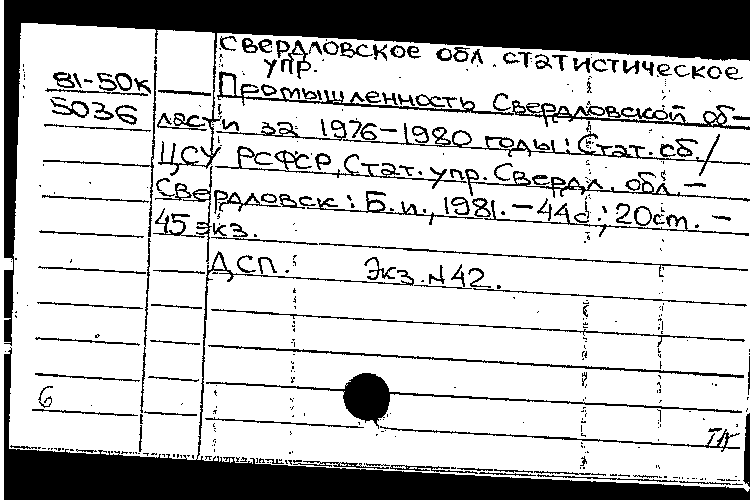 Свердловское обл. статистическое
упр.
81-50к
5036
Промышленность Свердловской об-
ласти за 1976-1980 годы: Стат. сб./
ЦСУ РСФСР, Стат. упр. Свердл. обл. -
Свердловск: Б.и., 1981. - 44с.; 20см. -
45 экз.
ДСП. Экз. N 42.
6